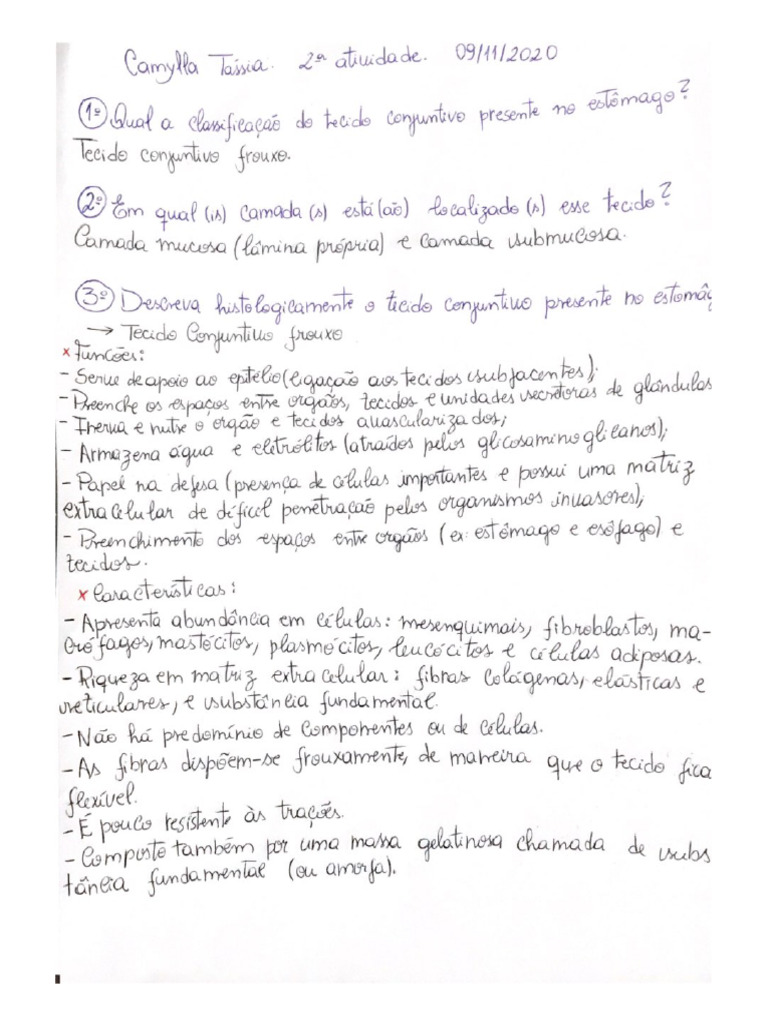 Camylla Tássia. 2ª atividade. 09/11/2020
1º Qual a classificação do tecido conjuntivo presente no estômago?
Tecido conjuntivo frouxo.
2º Em qual (is) camada (s) está (ão) localizado (s) esse tecido?
Camada mucosa (lâmina própria) e camada submucosa.
3º Descreva histologicamente o tecido conjuntivo presente no estomâg
→ Tecido Conjuntivo frouxo
x Funções:
- Serve de apoio ao epitélio (ligação aos tecidos subjacentes);
- Preenche os espaços entre orgãos, tecidos e unidades secretoras de glândulas
- Inerva e nutre o orgão e tecidos avascularizados;
- Armazena água e eletrólitos (atraídos pelos glicosaminoglicanos);
- Papel na defesa (presença de células importantes e possui uma matriz
extracelular de difícil penetração pelos organismos invasores);
- Preenchimento dos espaços entre orgãos (ex: estômago e esôfago) e
tecidos.
x Características:
- Apresenta abundância em células: mesenquimais, fibroblastos, ma-
crófagos, mastócitos, plasmócitos, leucócitos e células adiposas.
- Riqueza em matriz extracelular: fibras colágenas, elásticas e
reticulares, e substância fundamental.
- Não há predomínio de componentes ou de células.
- As fibras dispõem-se frouxamente, de maneira que o tecido fica
flexível.
- É pouco resistente às trações.
- Composto também por uma massa gelatinosa chamada de subs
tância fundamental (ou amorfa).